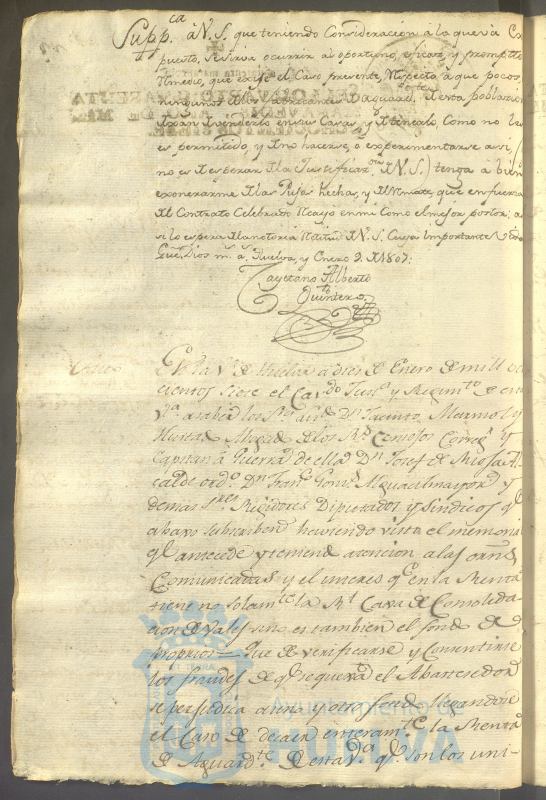 Supp.ca à V. S. que teniendo Consideracion a lo que và Ex
puesto, se sirva ocurrir al oportuno, eficaz, y prompto
remedio, que exije el Caso presente, respecto à que pocos,
ningunos de los fabricantes de aguard.te de esta poblacion
dexan de venderlo en sus Casas, y de no como no les
es permitido, y de no hacerse, o experimentarse asi,
no es de esperar de la Justificac.on de V. S.) tenga à bien
exonerarme de las Pujas hechas, y del remate, que en fuerza
del Contrato Celebrado recayo en mi Como el mejor postor; a
si lo espera de la notoria rectitud de V. S. Cuya importante vida
gue. Dios m.s a.s Huelva, y Enero 9. de 1807.
Cayetano Alberto
Quintero
En la V.a de Huelva a dies de Enero de mill ocho
cientos siete el Cav.do Just.a y Regim.to de esta
V.a a saber los S.res Lic.do D.n Jacinto Marmol y
Huertas Abogado de los R.s Consejos Correg.r y
Capitan à Guerra de ella D.n Josef de Mioja Al
calde ord.o D.n Fran.co Gomez Alguacil mayor y
demas S.res Regidores Diputados y Sindicos q.e
abaxo subscriben haviendo visto el memorial
q.e antecede y teniendo atencion a las ordns
Comunicadas y el interes q.e en la Renta
tiene no solam.te la R.l Caxa de Consolida
cion de Vales sino es tambien el fondo de
proprios que de verificarse y Consentirse
los fraudes de q.e se quexa el Abastecedor
se perjudica a uno y otro fondo llegandose
el Caso de decaer enteram.te la Renta
de Aguard.te de esta V.a q.e son los uni-
Ayuntamiento de
HUELVA